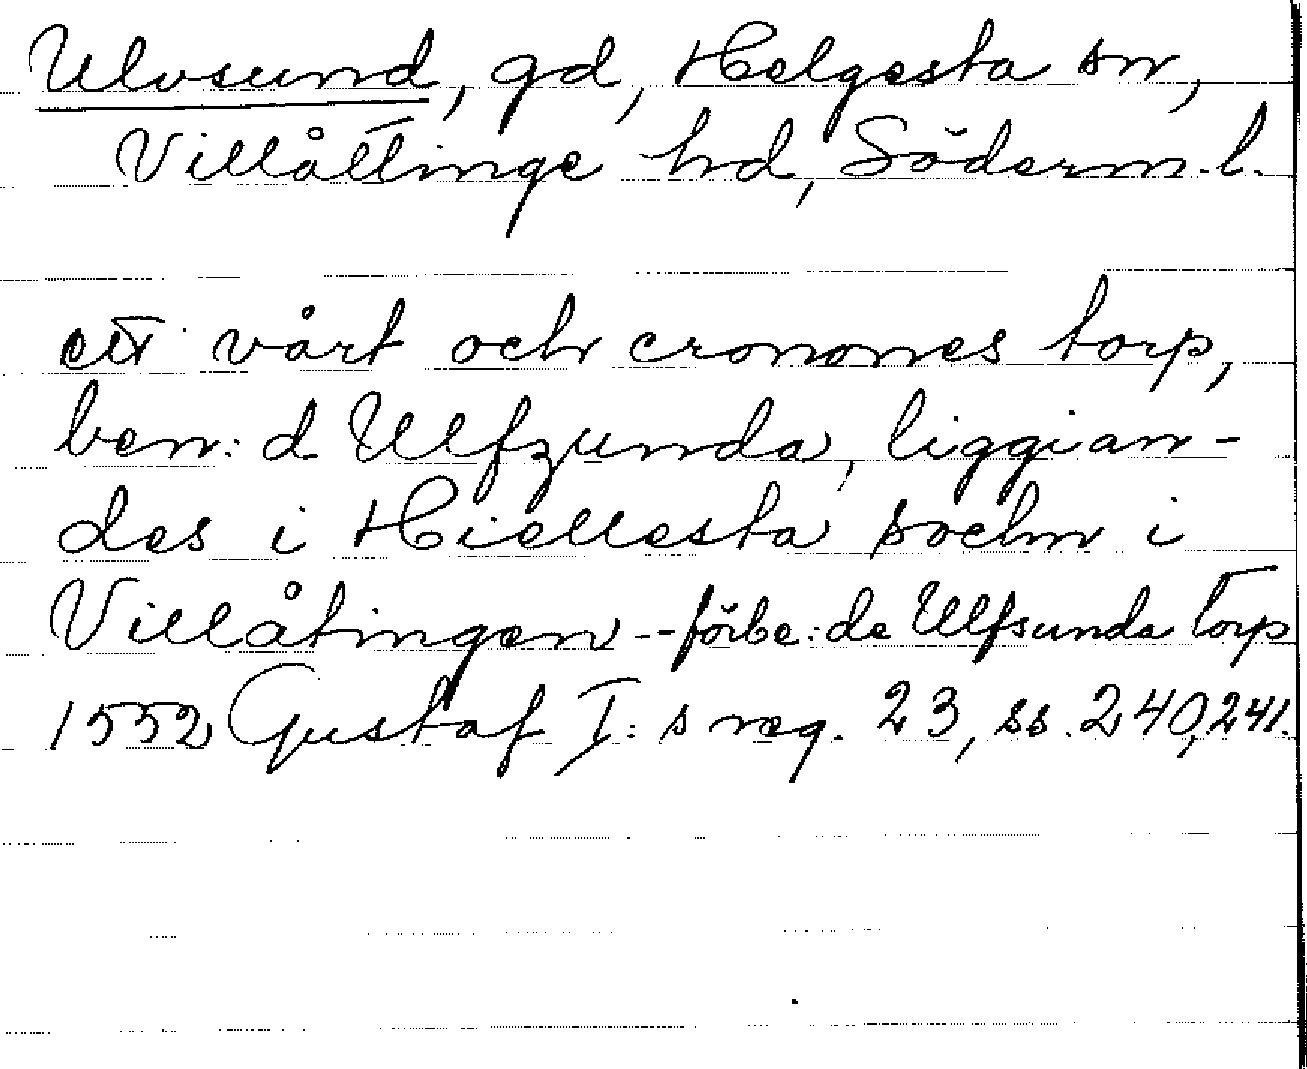 Ulvsund, gd, Helgesta sn,
Villåttinge hd, Söderm.l.
ett vårt och cronones torp,
ben:d Ulfzunda, liggian-
des i Hiellesta sochn i
Villåtingen -- förbe:de Ulfsunda torp
1552 Gustaf I:s reg. 23, ss. 240, 241.